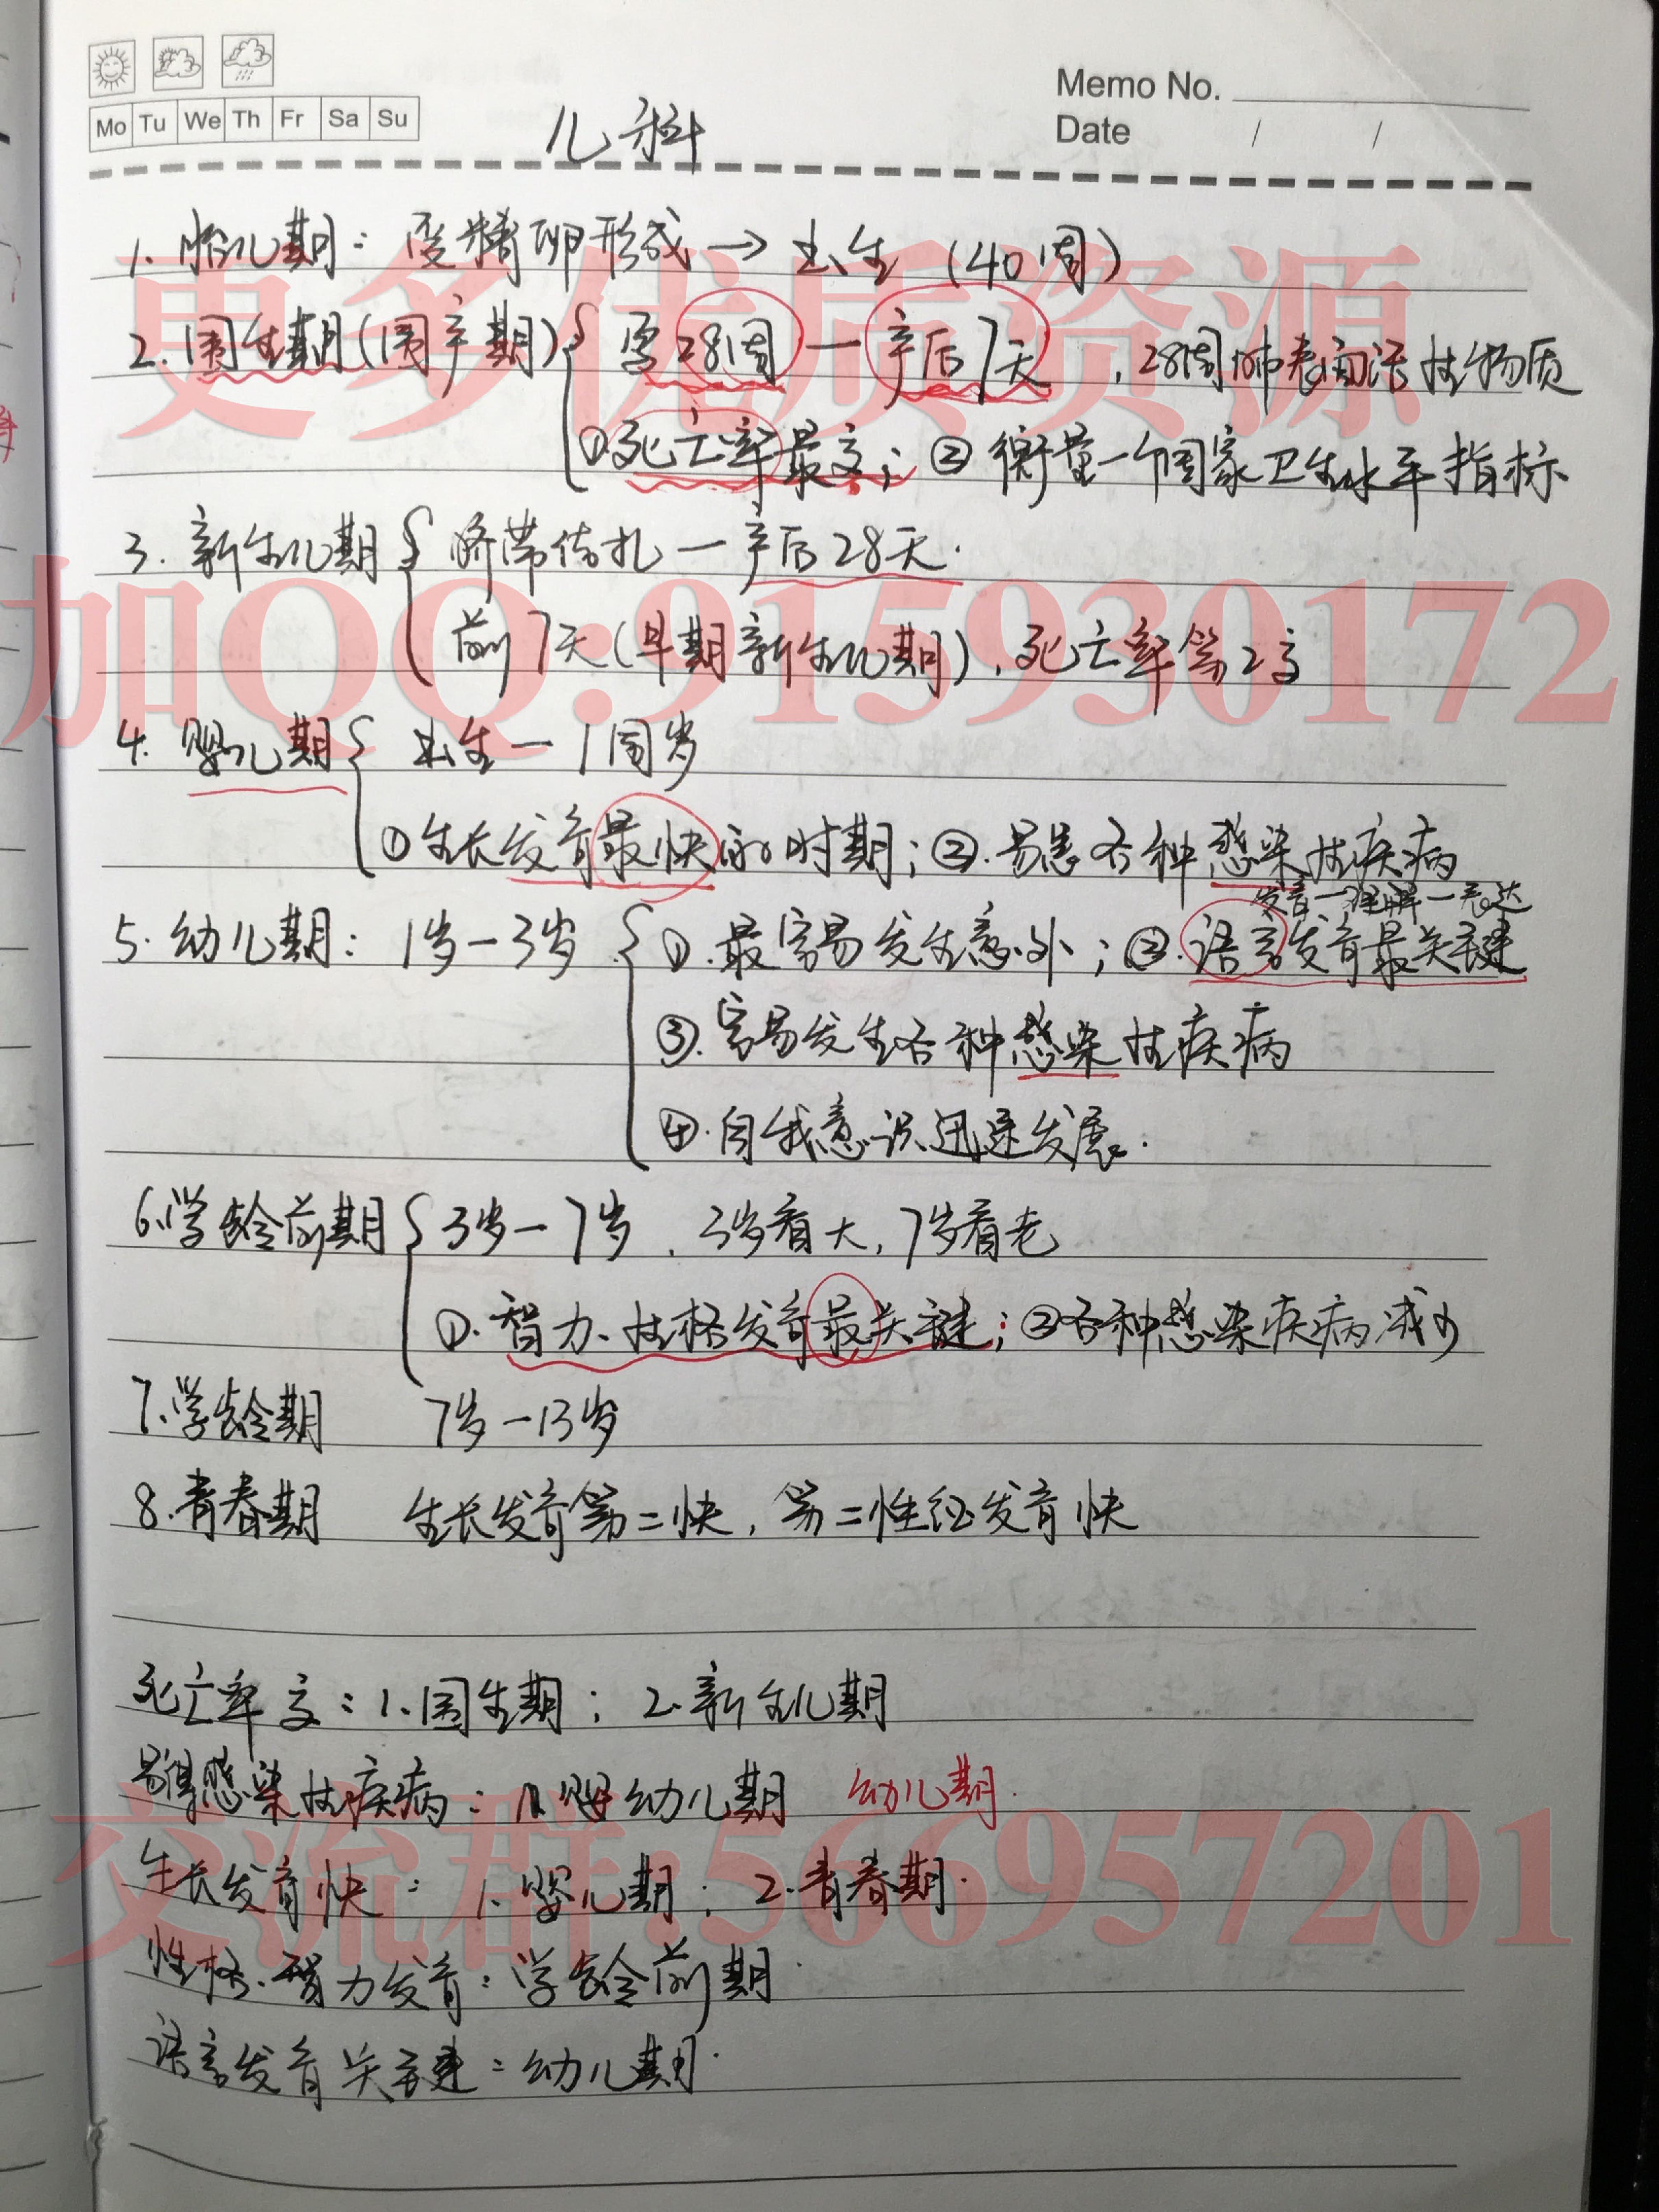 Mo Tu We Th Fr Sa Su
Memo No.
Date / /
儿科
1. 胎儿期：受精卵形成→出生（40周）
更多优质资源
2. 围生期（围产期） 孕28周—产后7天，28周肺表面活性物质
①死亡率最高；②衡量一个国家卫生水平指标
3. 新生儿期 脐带结扎—产后28天.
加QQ:915930172
前7天（早期新生儿期），死亡率第2高
4. 婴儿期 出生—1周岁
①生长发育最快的时期；②.易患各种感染性疾病
发音—理解—表达
5. 幼儿期： 1岁—3岁 ①.最容易发生意外；②.语言发育最关键
③.容易发生各种感染性疾病
④.自我意识迅速发展.
6.学龄前期 3岁—7岁，3岁看大，7岁看老
①.智力、性格发育最关键；②各种感染疾病减少
7.学龄期 7岁—13岁
8.青春期 生长发育第二快，第二性征发育快
死亡率高：1.围生期；2.新生儿期
易得感染性疾病：婴幼儿期 幼儿期.
交流群:566957201
生长发育快：1.婴儿期；2.青春期.
性格、智力发育：学龄前期.
语言发育关键：幼儿期.